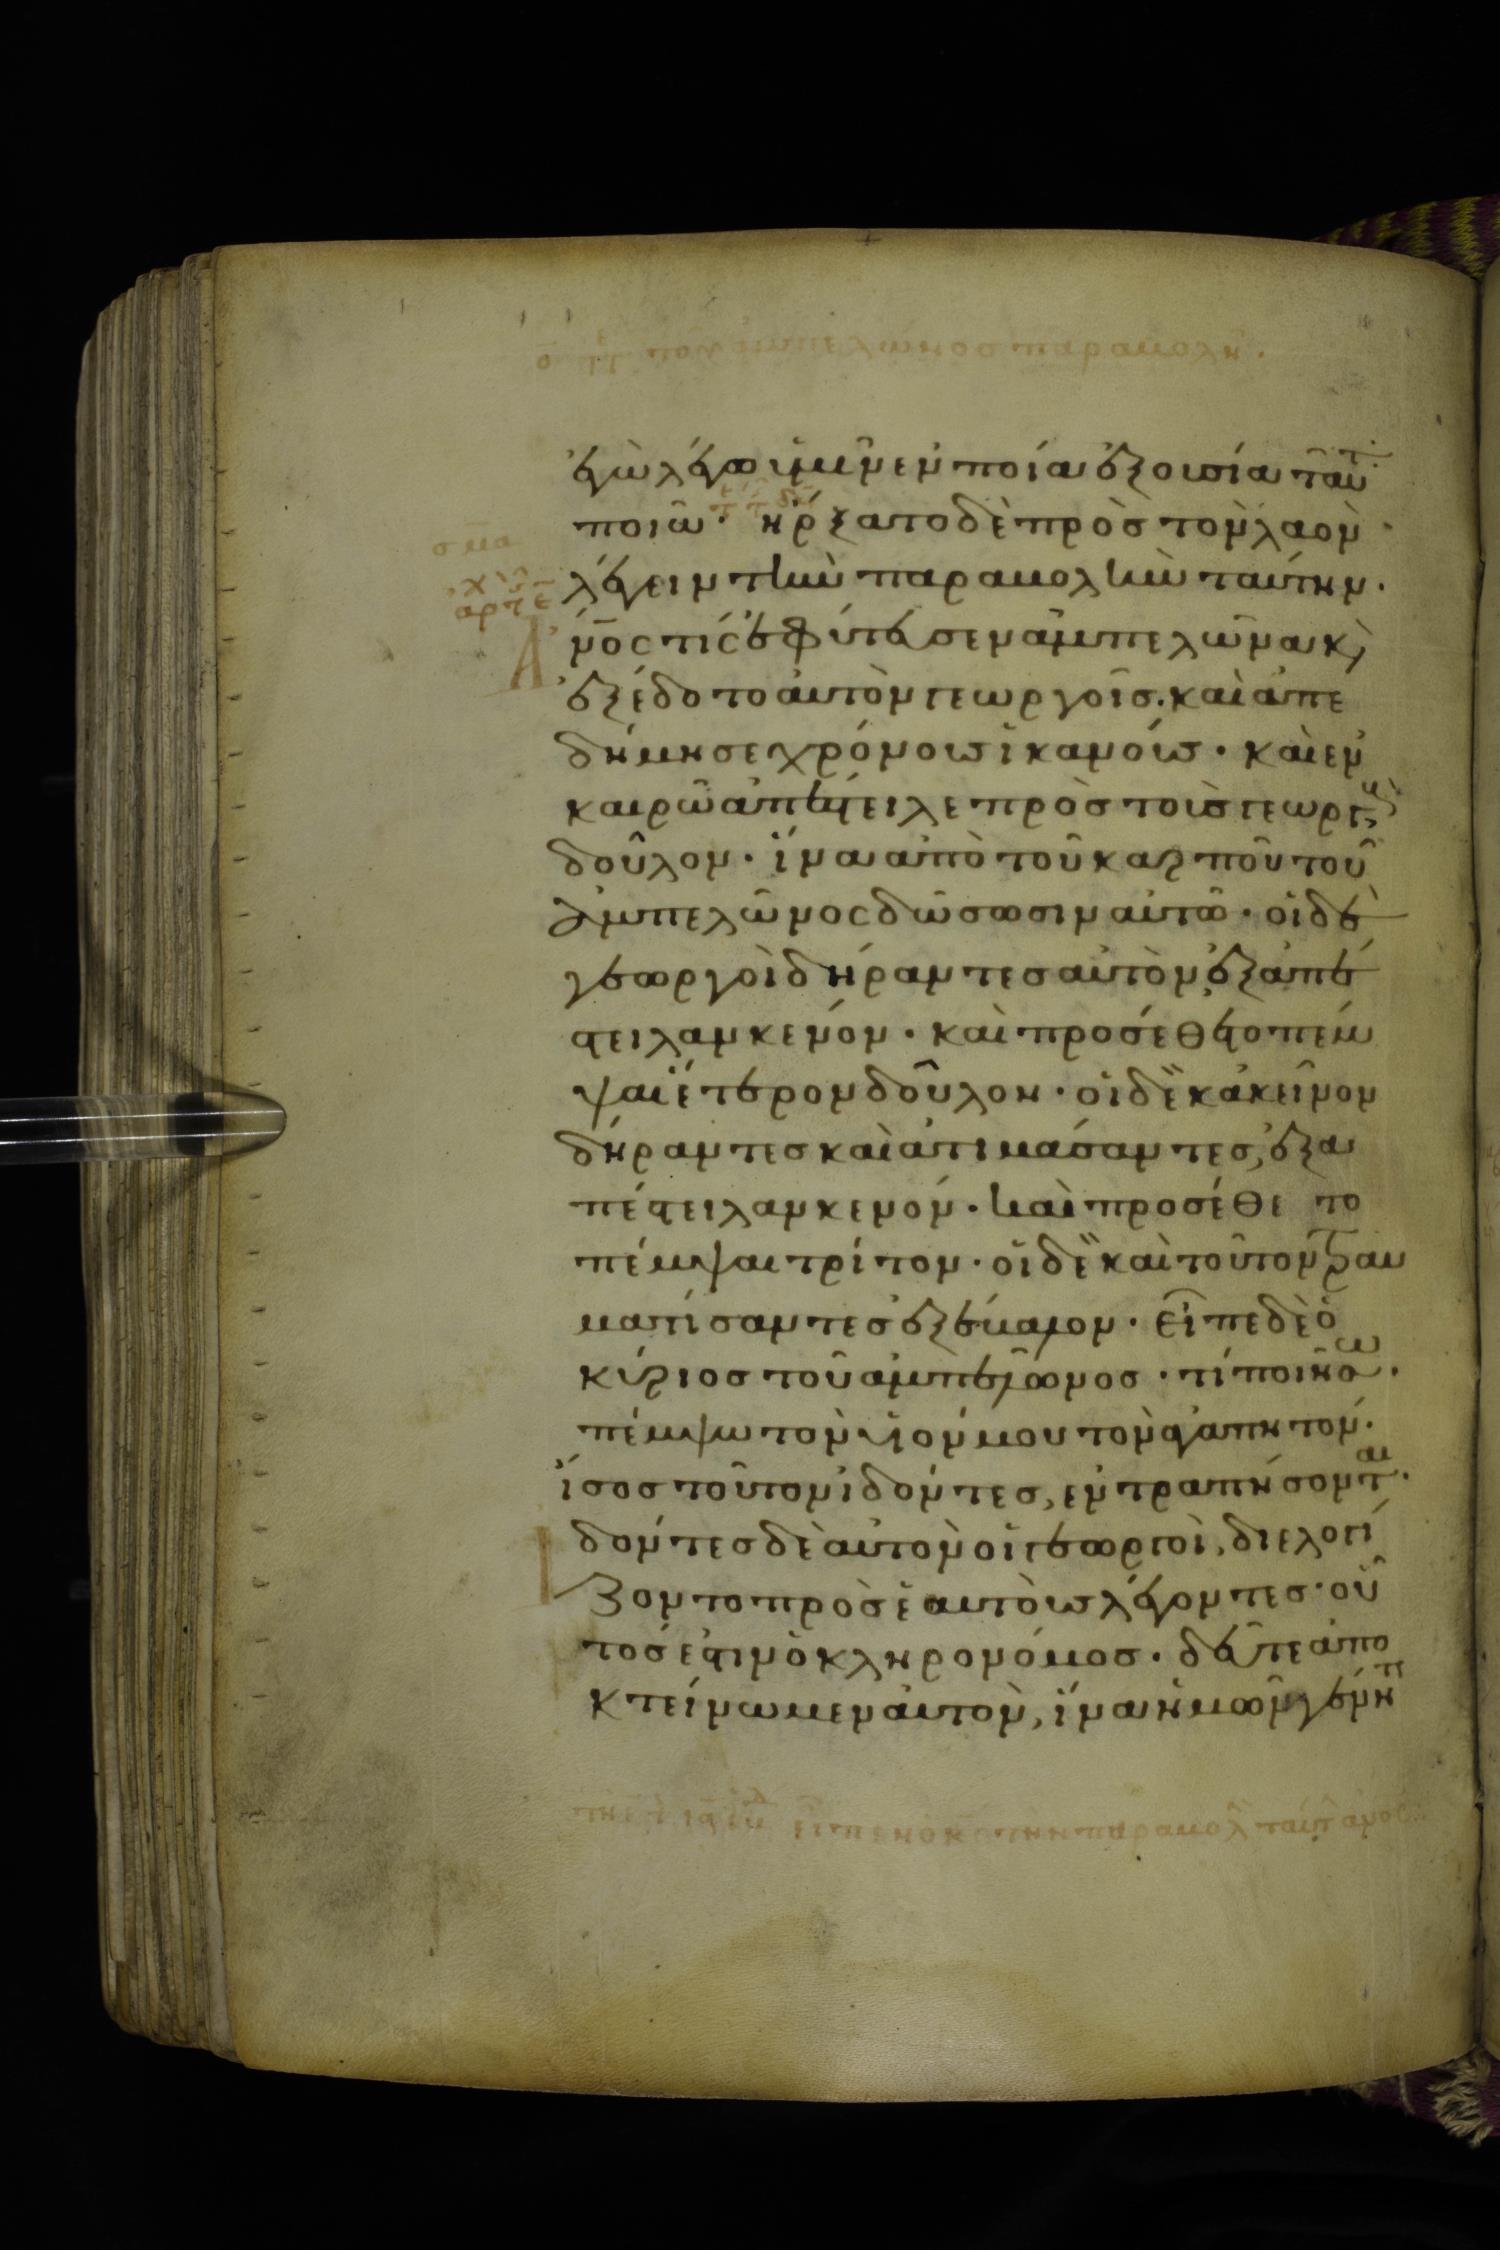 ἐγὼ λέγω ὑμῖν ἐν ποία ἐξουσία ταῦτ
ποιῶ. ἤρξατο δὲ πρὸς τὸν λαὸν
λέγειν τὴν παραβολὴν ταύτην.
Ἀνος τίς ἐφύτευσεν ἀμπελῶνα κ
ἐξέδοτο αὐτὸν γεωργοῖς. καὶ ἀπε
δήμησε χρόνους ἱκανούς. καὶ ἐν
καιρῶ ἀπέστειλε πρὸς τοὺς γεωργοὺς
δοῦλον. ἵνα ἀπὸ τοῦ καρποῦ τοῦ
ἀμπελῶνος δώσωσιν αὐτῶ. οἱ δὲ
γεωργοὶ δήραντες αὐτὸν ἐξαπέ
στειλαν κενόν. καὶ προσέθετο πέμ
ψαι ἕτερον δοῦλον. οἱ δὲ κἀκεῖνον
δήραντες καὶ ἀτιμάσαντες, ἐξα
πέστειλαν κενόν. καὶ προσέθετο
πέμψαι τρίτον. οἱ δὲ καὶ τοῦτον τραυ
ματίσαντες ἐξέβαλον. εἶπε δὲ ὁ
κύριος τοῦ ἀμπελῶνος. τί ποιήσω.
πέμψω τὸν υἱόν μου τὸν ἀγαπητόν.
ἴσως τοῦτον ἰδόντες, ἐντραπήσονται.
Ἰδόντες δὲ αὐτὸν οἱ γεωργοὶ, διελογί
ζοντο πρὸς ἑαυτοὺς λέγοντες. οὗ
τός ἐστιν ὁ κληρονόμος. δεῦτε ἀπο
κτείνωμεν αὐτὸν, ἵνα ἡμῶν γένητ